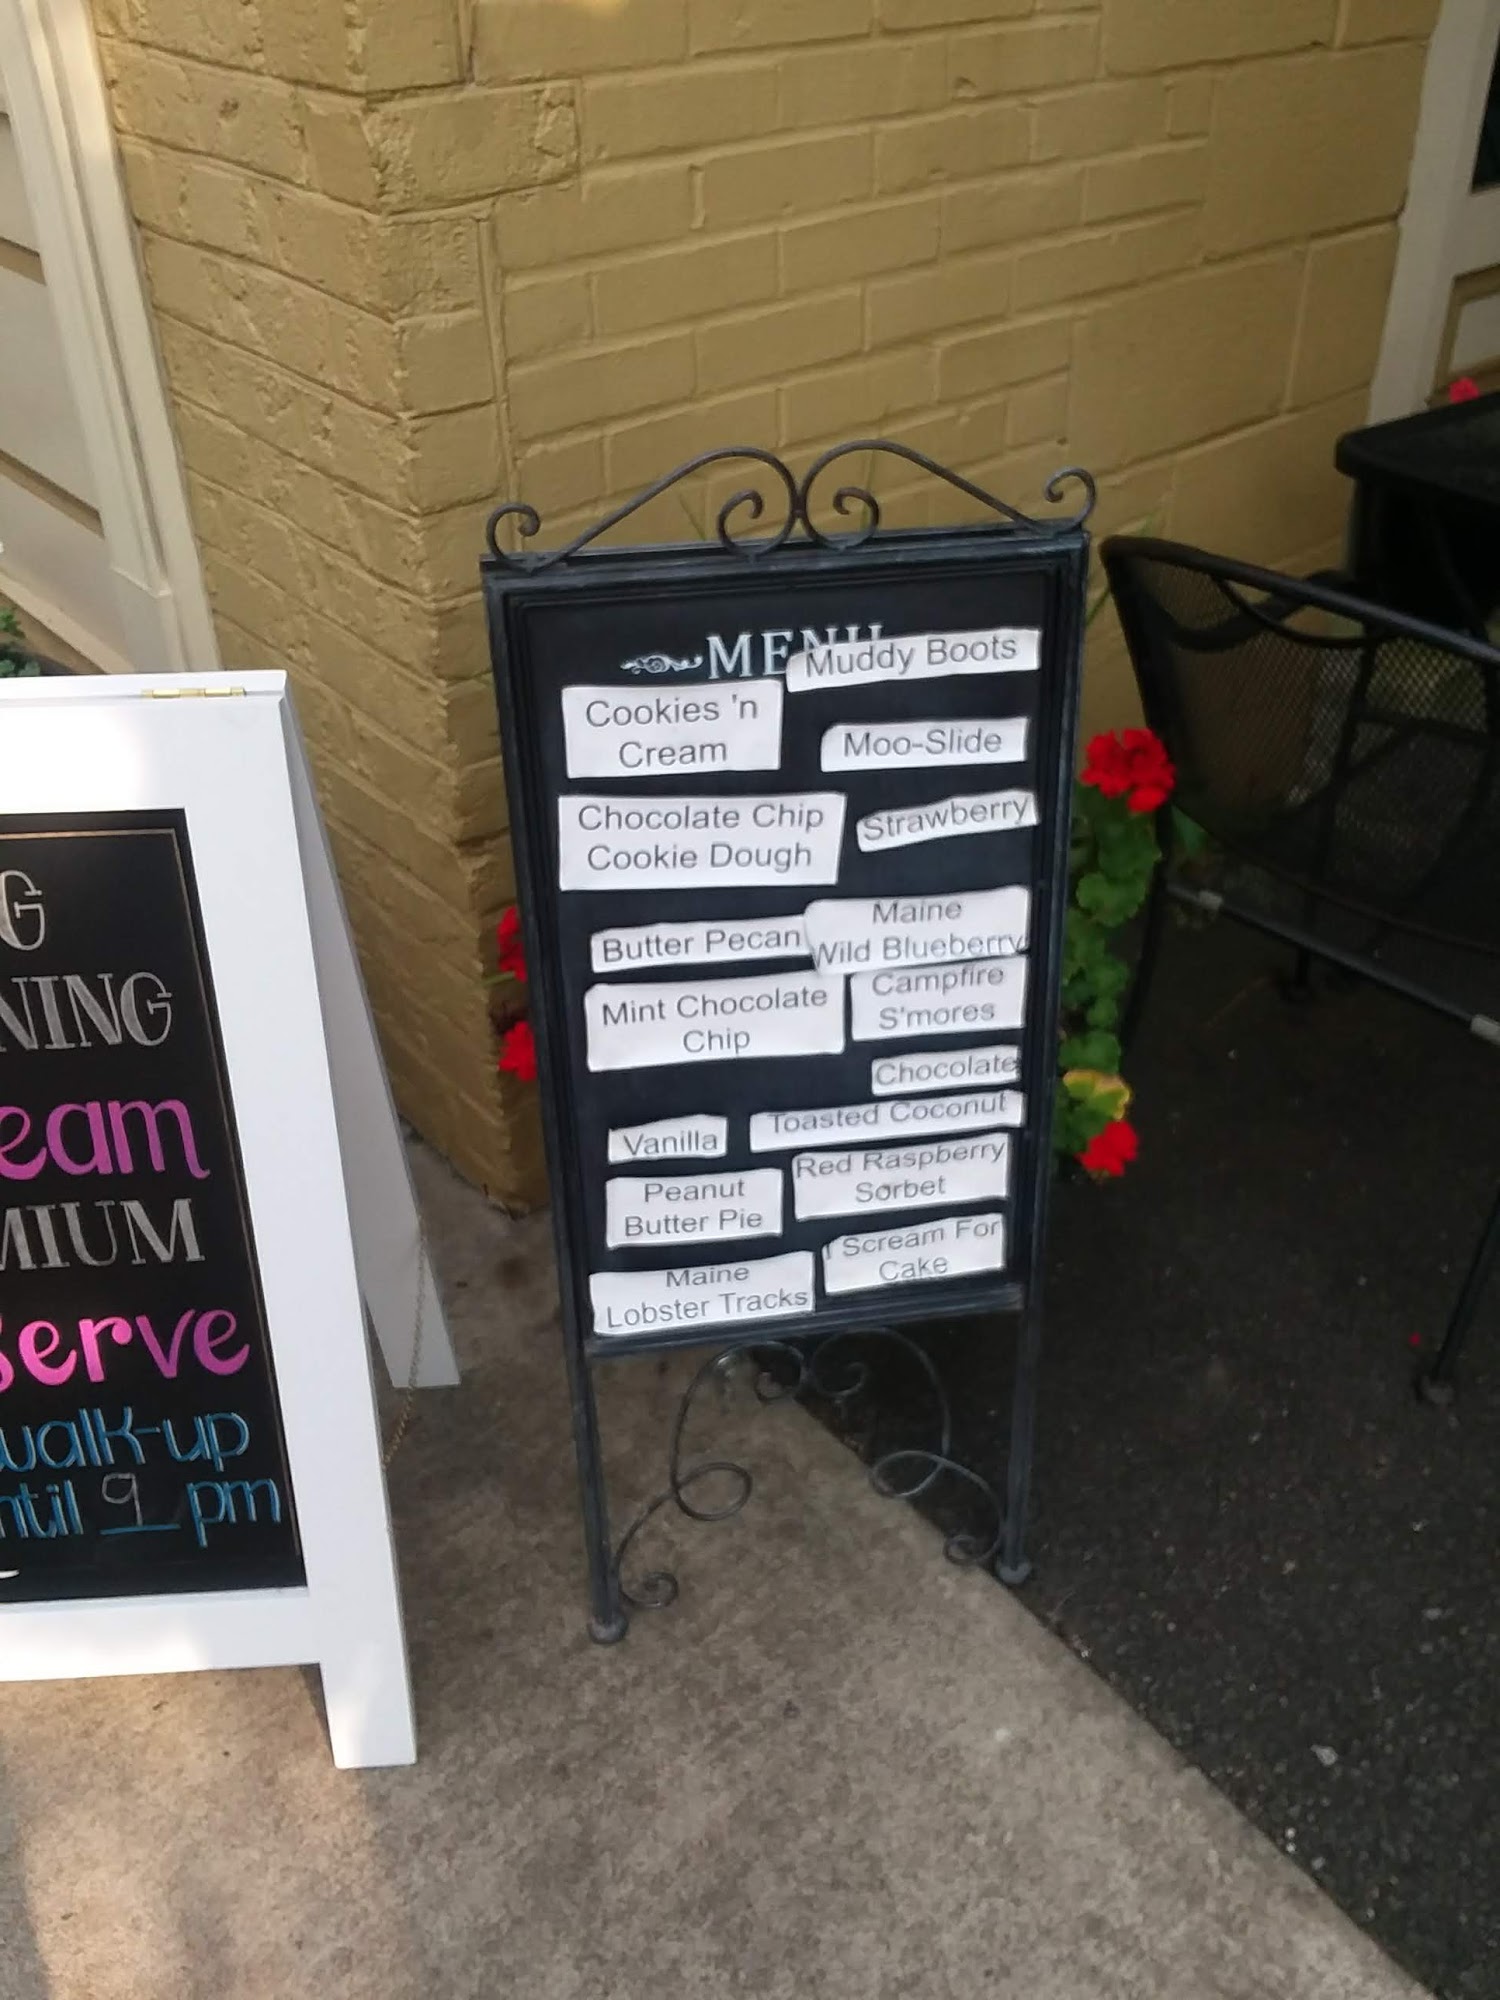 G
NING
eam
MIUM
serve
walk-up
ntil 9 pm
MENU
Muddy Boots
Cookies 'n
Cream
Moo-Slide
Chocolate Chip
Cookie Dough
Strawberry
Butter Pecan
Maine
Wild Blueberry
Mint Chocolate
Chip
Campfire
S'mores
Chocolate
Vanilla
Toasted Coconut
Peanut
Butter Pie
Red Raspberry
Sorbet
Maine
Lobster Tracks
I Scream For
Cake